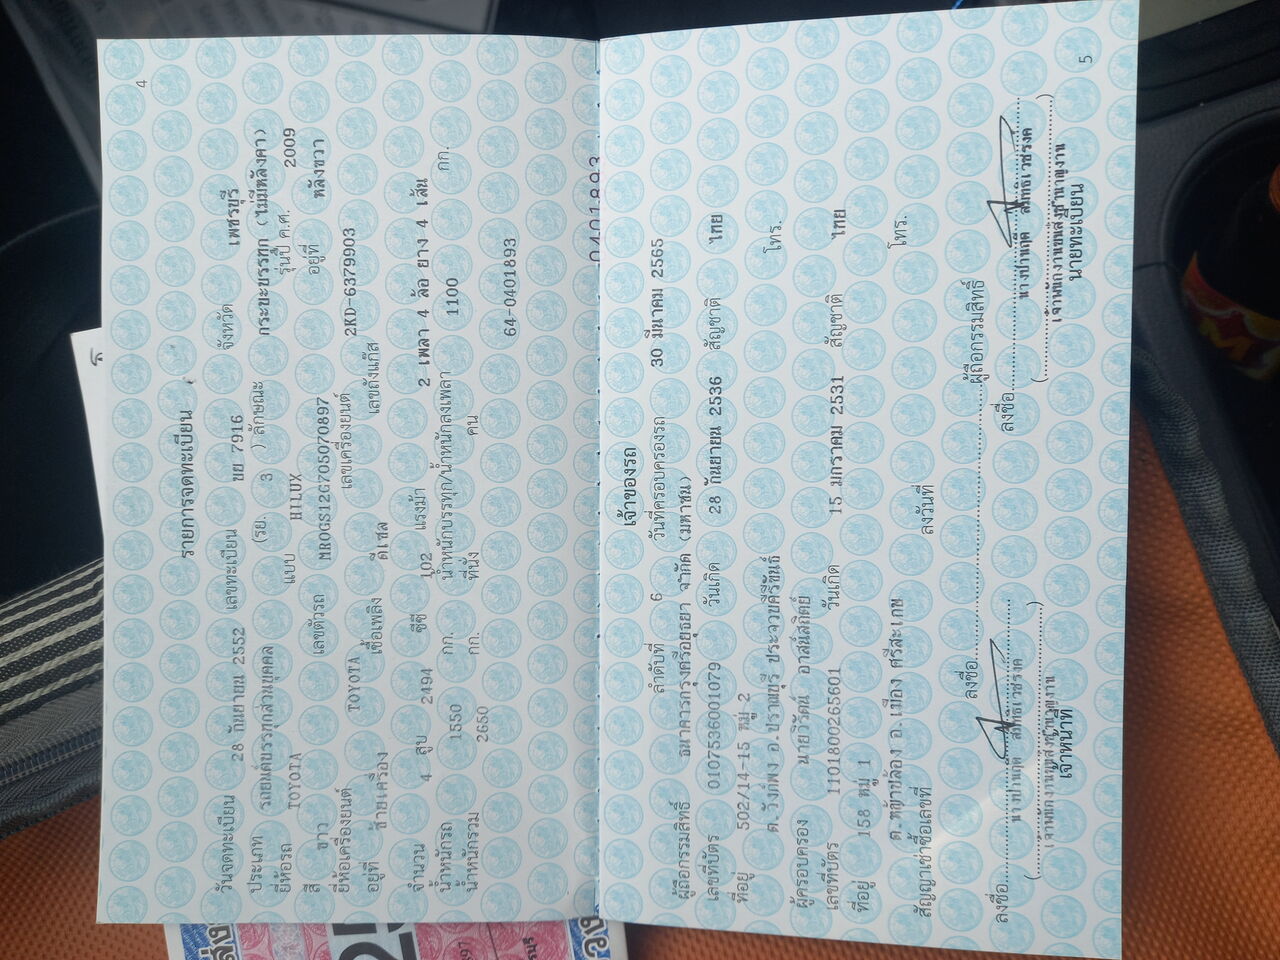 4
รายการจดทะเบียน
วันจดทะเบียน 28 กันยายน 2552 เลขทะเบียน ขย 7916 จังหวัด เพชรบุรี
ประเภท รถยนต์บรรทุกส่วนบุคคล (รย. 3 ) ลักษณะ กระบะบรรทุก (ไม่มีหลังคา)
ยี่ห้อรถ TOYOTA แบบ HILUX รุ่นปี ค.ศ. 2009
สี ขาว เลขตัวรถ MR0GS12G705070897 อยู่ที่ หลังขวา
ยี่ห้อเครื่องยนต์ TOYOTA เลขเครื่องยนต์ 2KD-6379903
อยู่ที่ ซ้ายเครื่อง เชื้อเพลิง ดีเซล เลขถังแก๊ส
จำนวน 4 สูบ 2494 ซีซี 102 แรงม้า 2 เพลา 4 ล้อ ยาง 4 เส้น
น้ำหนักรถ 1550 กก. น้ำหนักบรรทุก/น้ำหนักลงเพลา 1100 กก.
น้ำหนักรวม 2650 กก. ที่นั่ง คน
64-0401893
0401893
5
เจ้าของรถ
ลำดับที่ 6 วันที่ครอบครองรถ 30 มีนาคม 2565
ผู้ถือกรรมสิทธิ์ ธนาคารกรุงศรีอยุธยา จำกัด (มหาชน)
เลขที่บัตร 0107536001079 วันเกิด 28 กันยายน 2536 สัญชาติ ไทย
ที่อยู่ 502/14-15 หมู่ 2
ต.วังก์พง อ.ปราณบุรี ประจวบคีรีขันธ์ โทร.
ผู้ครอบครอง นายวิรัตน์ อาสน์สถิตย์
เลขที่บัตร 1101800265601 วันเกิด 15 มกราคม 2531 สัญชาติ ไทย
ที่อยู่ 158 หมู่ 1
ต.หญ้าปล้อง อ.เมือง ศรีสะเกษ โทร.
สัญญาเช่าซื้อเลขที่ ลงวันที่
ลงชื่อ ผู้ถือกรรมสิทธิ์
ลงชื่อ ลงชื่อ
เจ้าหน้าที่ นายทะเบียน